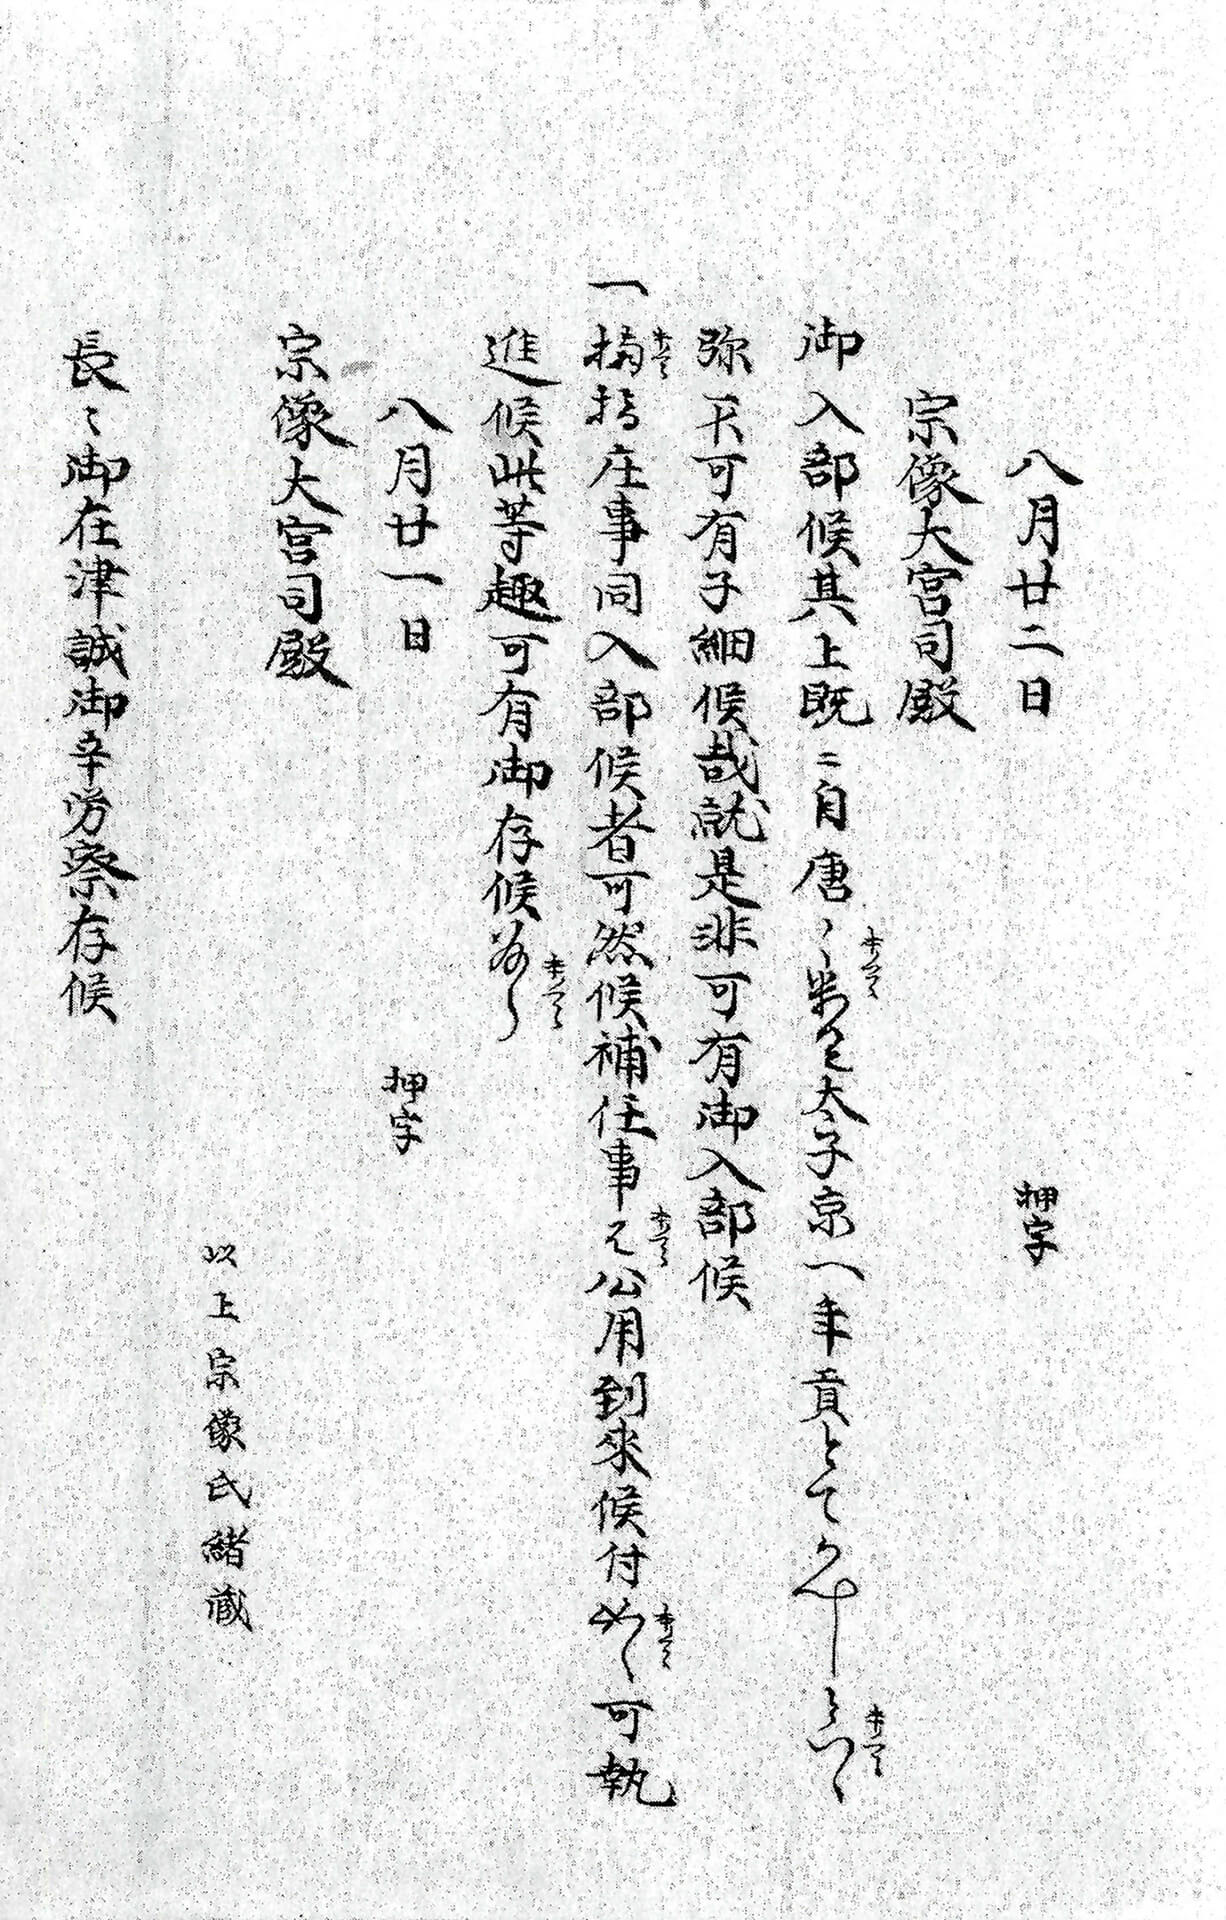 八月廿二日　押字
宗像大宮司殿
御入部候其上既ニ自唐〻太子京へ年貢とて
弥不可有子細候哉就是非可有御入部候
一　庄事同入部候者可然候補任事公用到來候付可執
進候此等趣可有御存候
八月廿一日　押字
宗像大宮司殿
以上宗像氏緒蔵
長〻御在津誠御辛労察存候